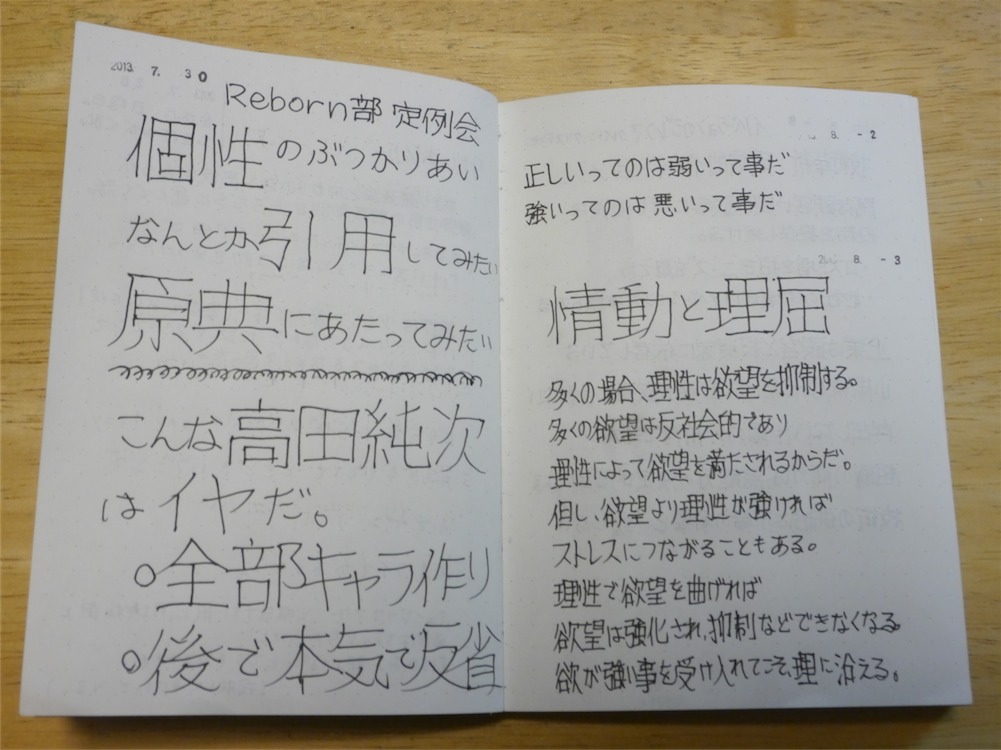 2013. 7. 30
Reborn部 定例会
個性のぶつかりあい
なんとか引用してみたい
原典にあたってみたい
こんな高田純次
はイヤだ。
○全部キャラ作り
○後で本気で反省
8. -2
正しいってのは弱いって事だ
強いってのは悪いって事だ
8. -3
情動と理屈
多くの場合、理性は欲望を抑制する。
多くの欲望は反社会的であり
理性によって欲望を満たされるからだ。
但し、欲望より理性が強ければ
ストレスにつながることもある。
理性で欲望を曲げれば
欲望は強化され、抑制などできなくなる。
欲が強い事を受け入れてこそ、理に沿える。